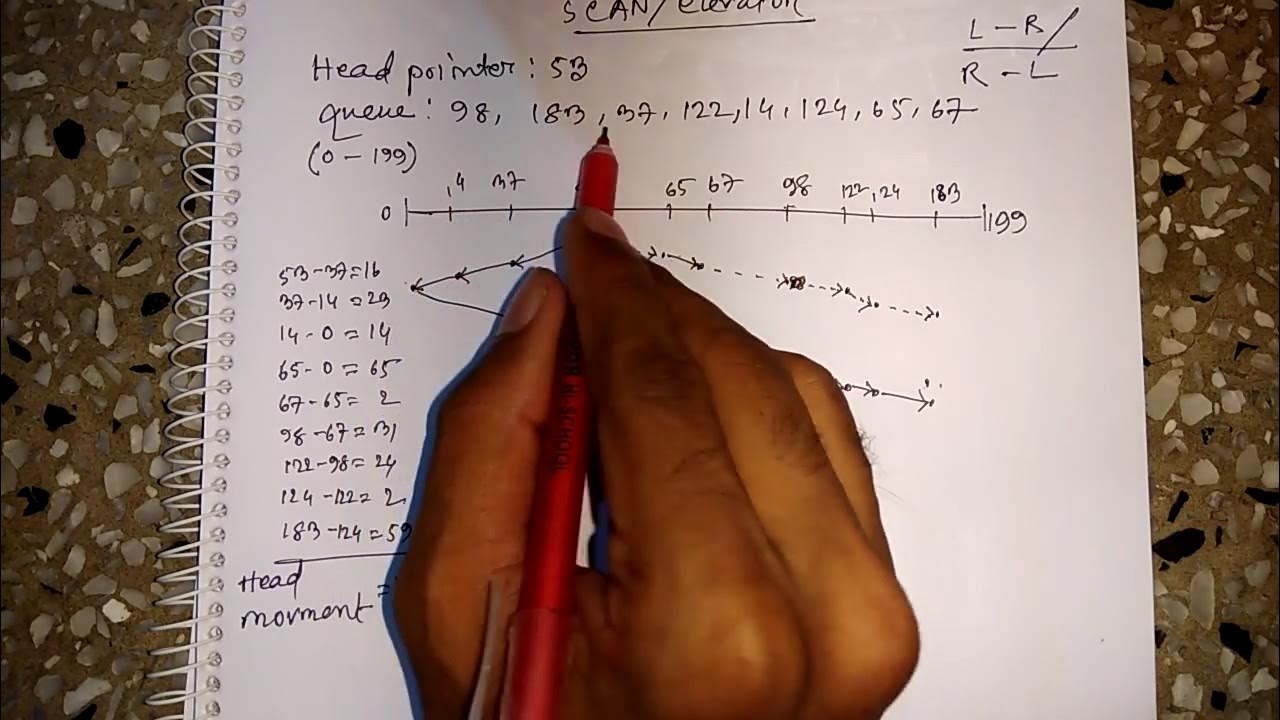 SCAN/elevator
L-R/
R-L
Head pointer: 53
queue: 98, 183, 37, 122, 14, 124, 65, 67
(0-199)
0 14 37 65 67 98 122 124 183 199
53-37=16
37-14=23
14-0=14
65-0=65
67-65=2
98-67=31
122-98=24
124-122=2
183-124=59
Head
movment =
SCHOOL